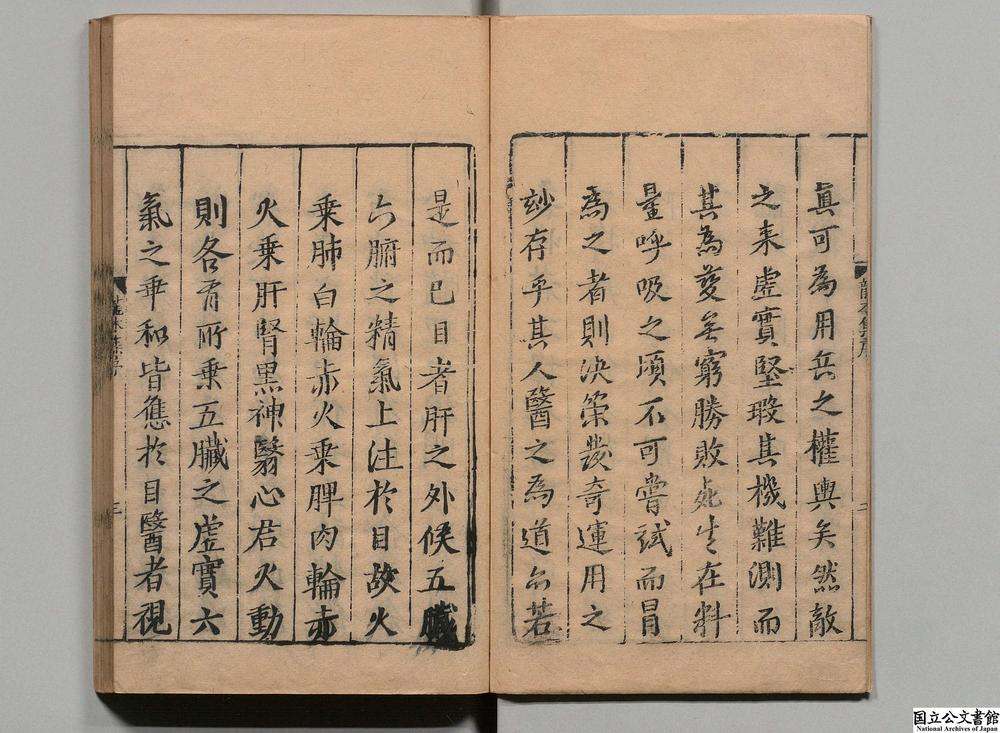 眞可為用兵之權輿矣然敵
之來虛實堅瑕其機難測而
其為變無窮勝敗死生在料
量呼吸之頃不可嘗試而冒
為之者則決策發奇運用之
妙存乎其人醫之為道亦若
是而已目者肝之外候五臟
六腑之精氣上注於目故火
乗肺白輪赤火乗脾肉輪赤
火乗肝腎黒神翳心君火動
則各有所乗五臟之虛實六
氣之乖和皆應於目醫者視
国立公文書館
National Archives of Japan